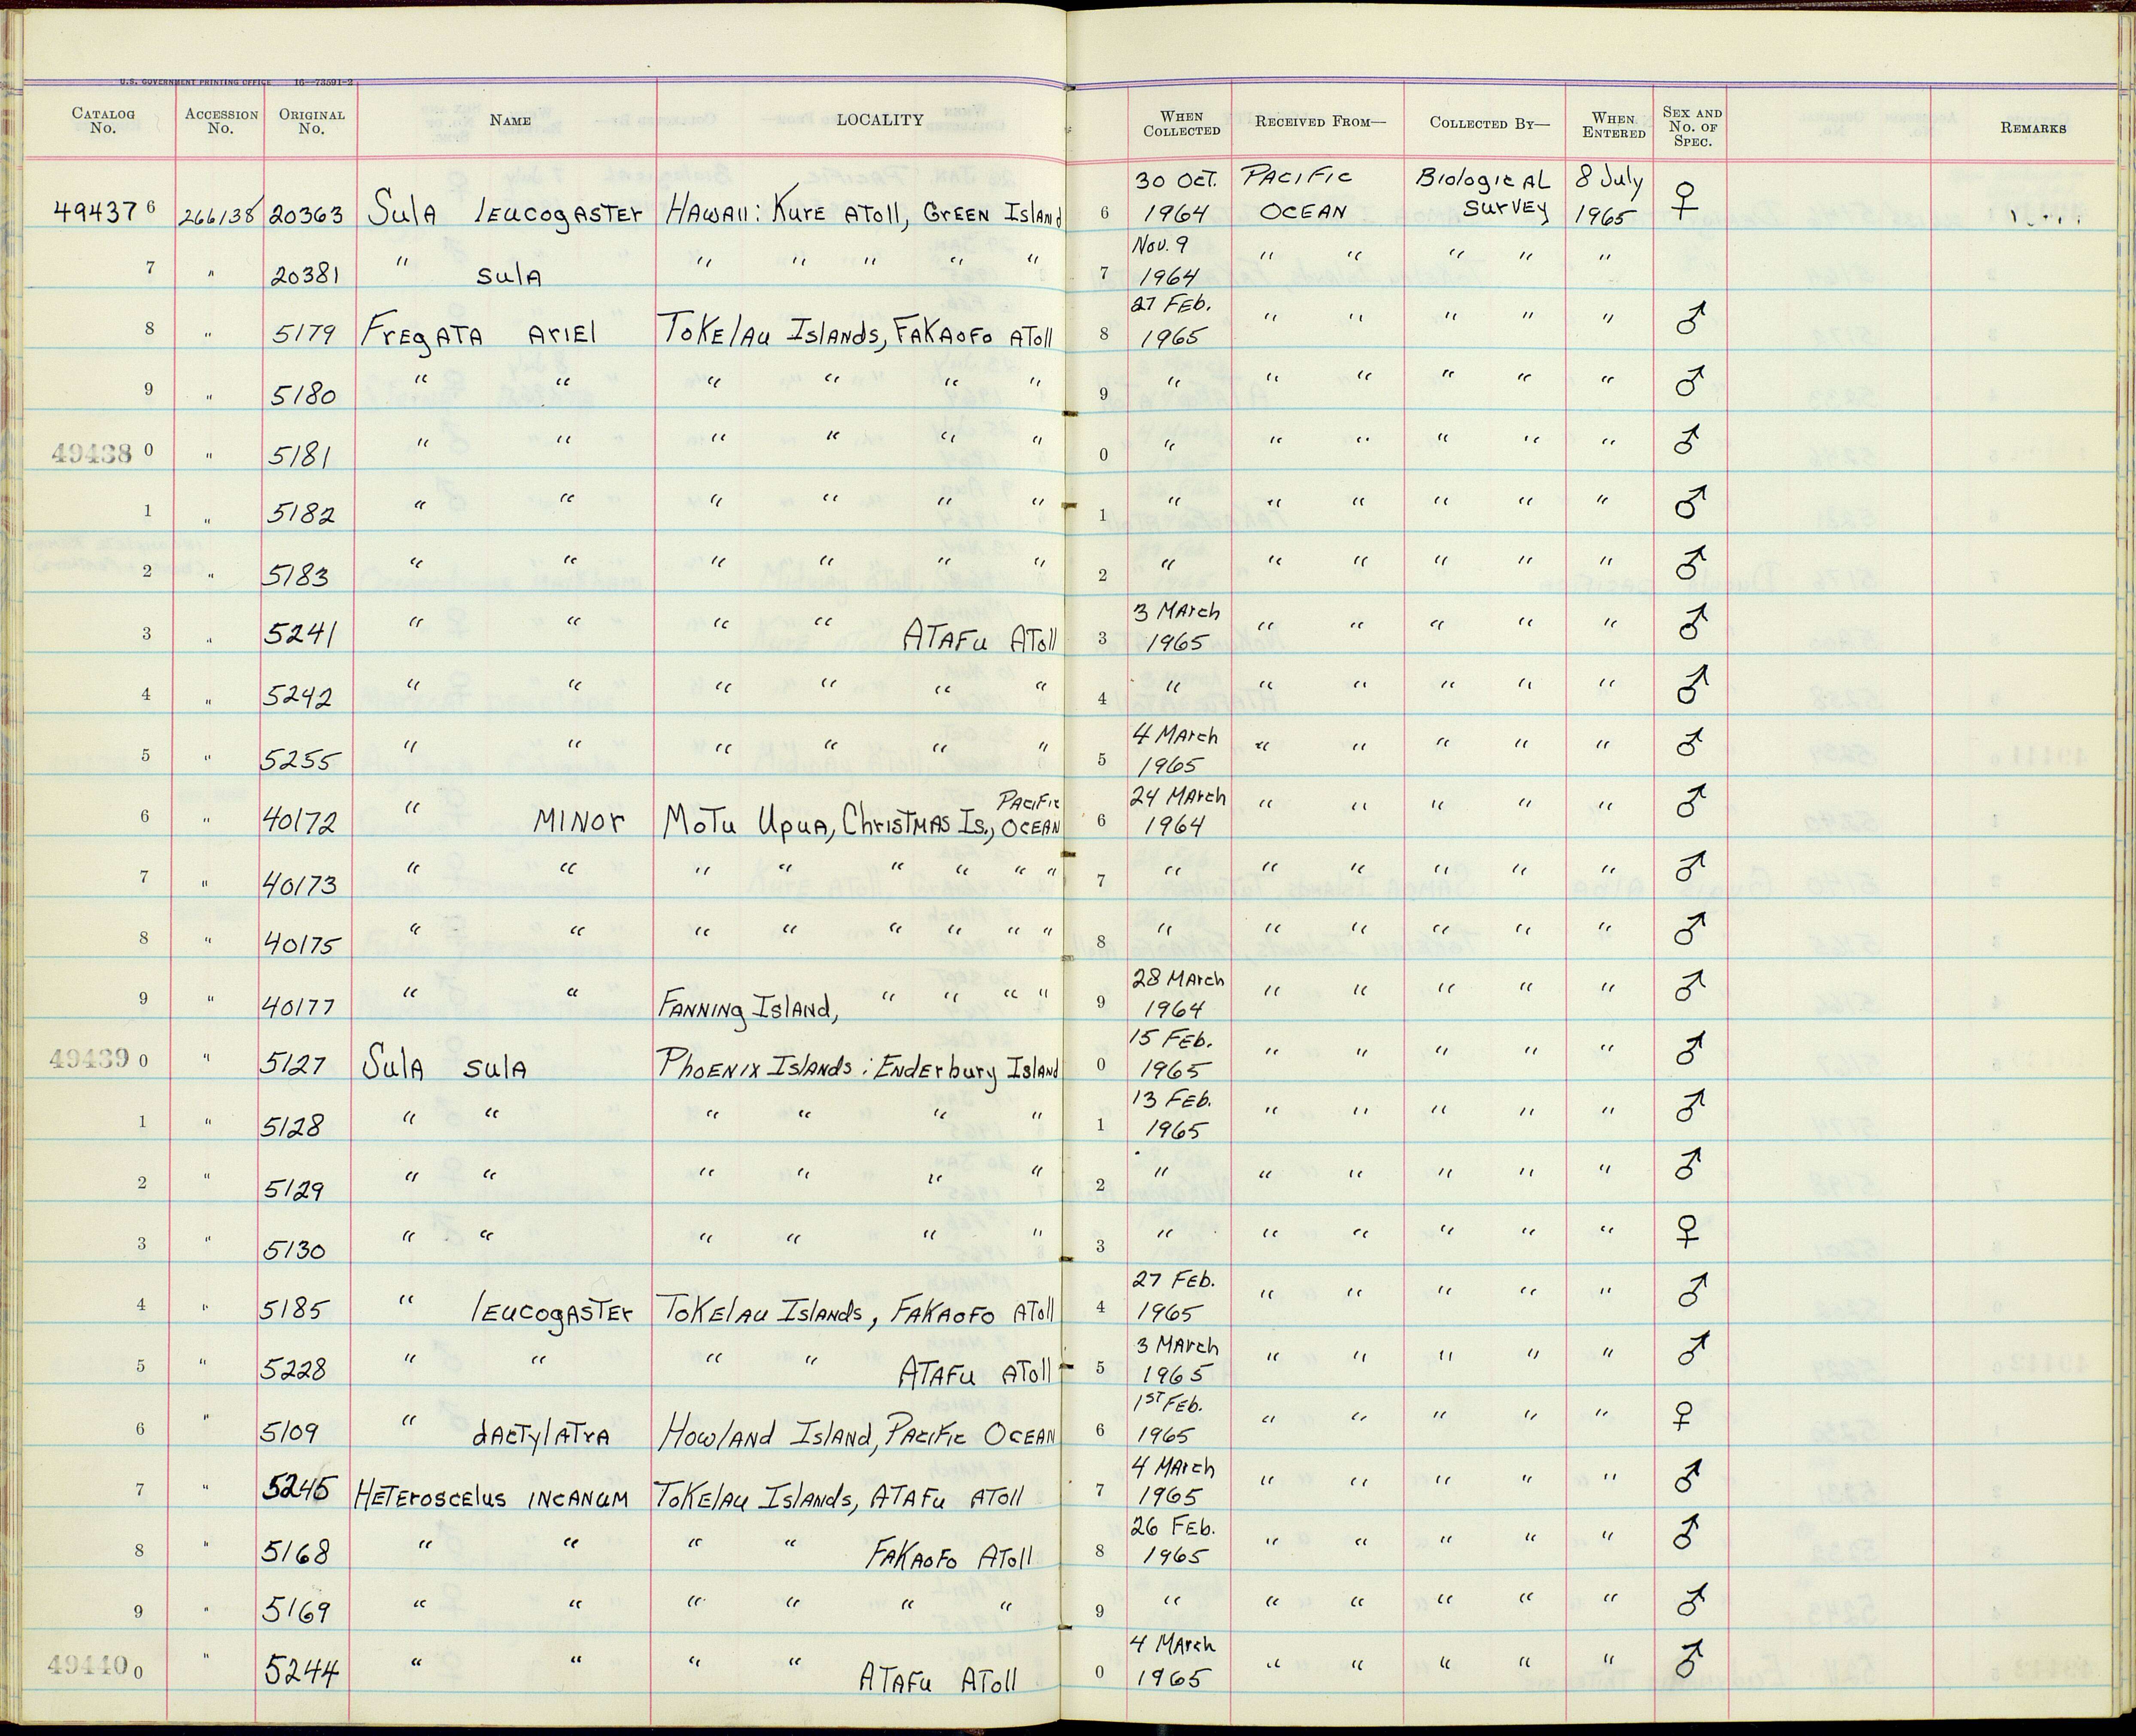 U.S. GOVERNMENT PRINTING OFFICE 16—73591-2
CATALOG No. ACCESSION No. ORIGINAL No. NAME LOCALITY WHEN COLLECTED RECEIVED FROM— COLLECTED BY— WHEN ENTERED SEX AND No. OF SPEC. REMARKS
49437 6 266138 20363 Sula leucogaster Hawaii: Kure Atoll, Green Island 6 30 Oct. 1964 Pacific Ocean Biological Survey 8 July 1965 ♀
7 " 20381 " sula " " " " " 7 Nov. 9 1964 " " " " "
8 " 5179 Fregata ariel Tokelau Islands, Fakaofo Atoll 8 27 Feb. 1965 " " " " " ♂
9 " 5180 " " " " " " 9 " " " " " " ♂
49438 0 " 5181 " " " " " " 0 " " " " " " ♂
1 " 5182 " " " " " " 1 " " " " " " ♂
2 " 5183 " " " " " " 2 " " " " " " ♂
3 " 5241 " " " " Atafu Atoll 3 3 March 1965 " " " " " ♂
4 " 5242 " " " " " " 4 " " " " " " ♂
5 " 5255 " " " " " " 5 4 March 1965 " " " " " ♂
6 " 40172 " minor Motu Upua, Christmas Is., Pacific Ocean 6 24 March 1964 " " " " " ♂
7 " 40173 " " " " " " " " 7 " " " " " " ♂
8 " 40175 " " " " " " " " 8 " " " " " " ♂
9 " 40177 " " Fanning Island, " " " " 9 28 March 1964 " " " " " ♂
49439 0 " 5127 Sula sula Phoenix Islands: Enderbury Island 0 15 Feb. 1965 " " " " " ♂
1 " 5128 " " " " " " 1 13 Feb. 1965 " " " " " ♂
2 " 5129 " " " " " " 2 " " " " " " ♂
3 " 5130 " " " " " " 3 " " " " " " ♀
4 " 5185 " leucogaster Tokelau Islands, Fakaofo Atoll 4 27 Feb. 1965 " " " " " ♂
5 " 5228 " " " " Atafu Atoll 5 3 March 1965 " " " " " ♂
6 " 5109 " dactylatra Howland Island, Pacific Ocean 6 1st Feb. 1965 " " " " " ♀
7 " 5245 Heteroscelus incanum Tokelau Islands, Atafu Atoll 7 4 March 1965 " " " " " ♂
8 " 5168 " " " " Fakaofo Atoll 8 26 Feb. 1965 " " " " " ♂
9 " 5169 " " " " " " 9 " " " " " " ♂
49440 0 " 5244 " " " " Atafu Atoll 0 4 March 1965 " " " " " ♂